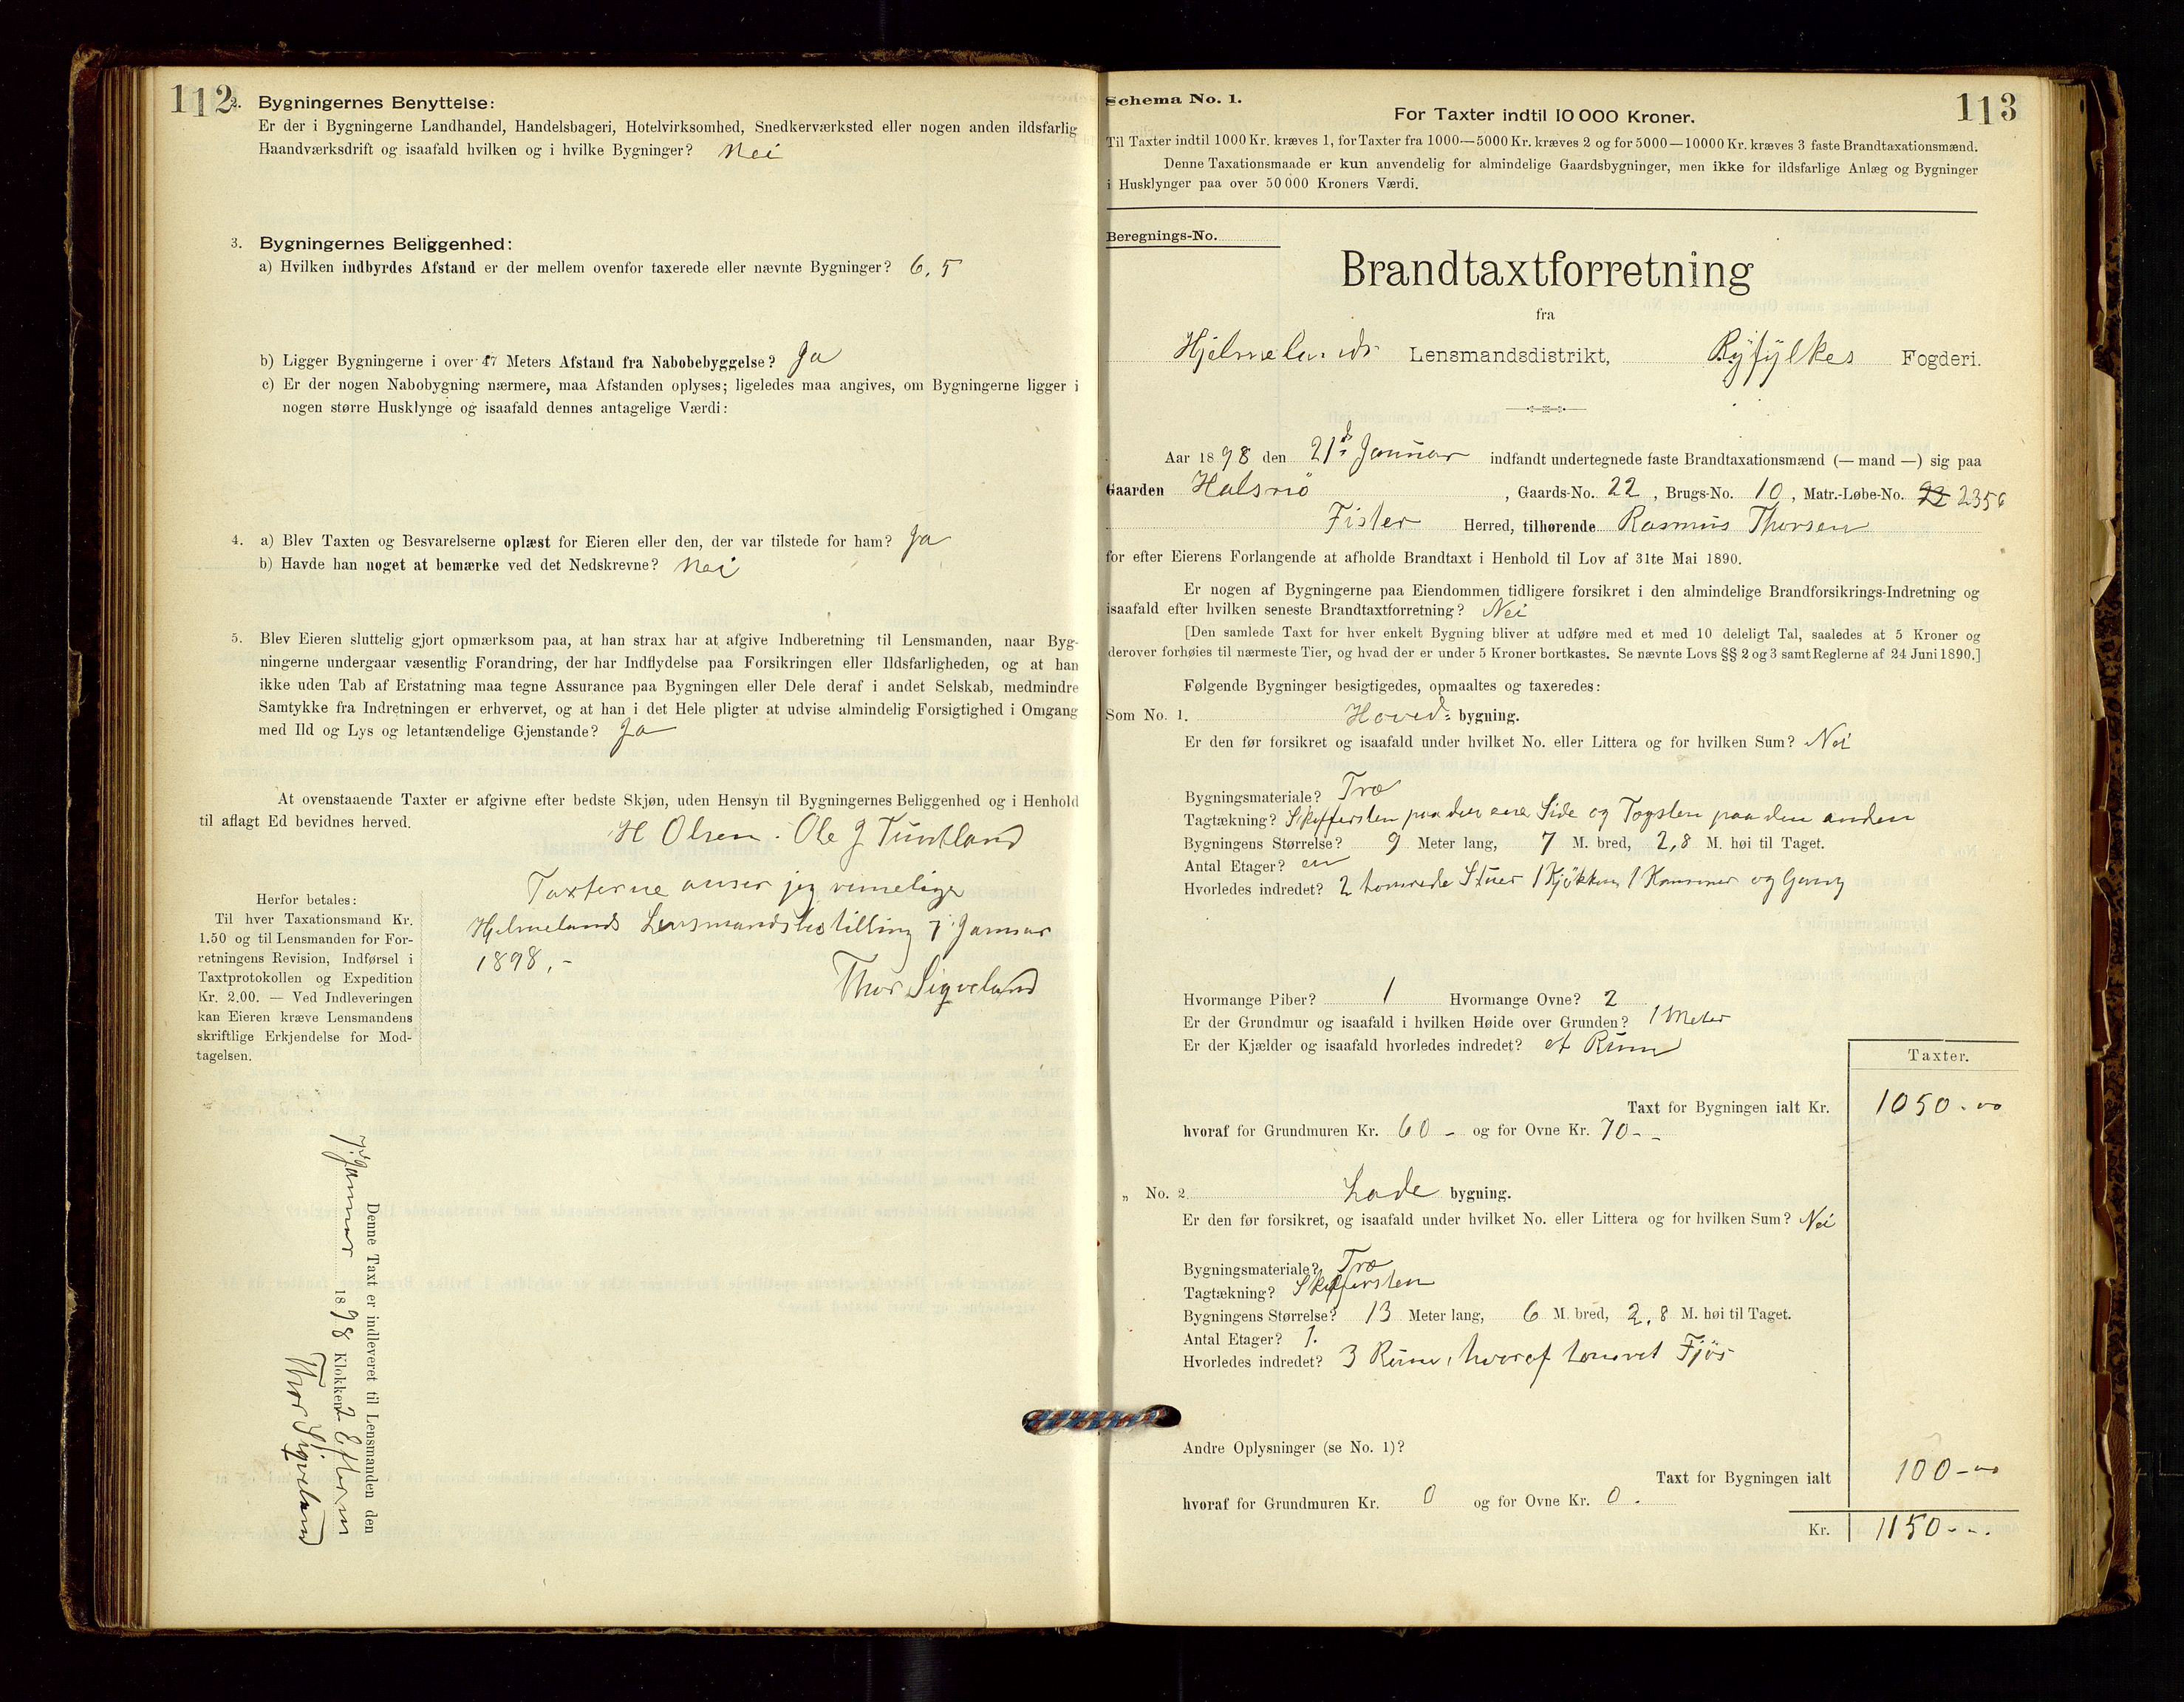 112
2. Bygningernes Benyttelse:
Er der i Bygningerne Landhandel, Handelsbageri, Hotelvirksomhed, Snedkerværksted eller nogen anden ildsfarlig
Haandværksdrift og isaafald hvilken og i hvilke Bygninger? Nei
3. Bygningernes Beliggenhed:
a) Hvilken indbyrdes Afstand er der mellem ovenfor taxerede eller nævnte Bygninger? 6,5
b) Ligger Bygningerne i over 47 Meters Afstand fra Nabobebyggelse? Ja
c) Er der nogen Nabobygning nærmere, maa Afstanden oplyses; ligeledes maa angives, om Bygningerne ligger i
nogen større Husklynge og isaafald dennes antagelige Værdi:
4. a) Blev Taxten og Besvarelserne oplæst for Eieren eller den, der var tilstede for ham? Ja
b) Havde han noget at bemærke ved det Nedskrevne? Nei
5. Blev Eieren sluttelig gjort opmærksom paa, at han strax har at afgive Indberetning til Lensmanden, naar Byg-
ningerne undergaar væsentlig Forandring, der har Indflydelse paa Forsikringen eller Ildsfarligheden, og at han
ikke uden Tab af Erstatning maa tegne Assurance paa Bygningen eller Dele deraf i andet Selskab, medmindre
Samtykke fra Indretningen er erhvervet, og at han i det Hele pligter at udvise almindelig Forsigtighed i Omgang
med Ild og Lys og letantændelige Gjenstande? Ja
At ovenstaaende Taxter er afgivne efter bedste Skjøn, uden Hensyn til Bygningernes Beliggenhed og i Henhold
til aflagt Ed bevidnes herved.
H Olsen. Ole J Tuntland
Taxterne anser jeg rimelige
Hjelmelands Lensmandsbestilling 7 Januar
1898.-
Thor Sigveland
Herfor betales:
Til hver Taxationsmand Kr.
1.50 og til Lensmanden for For-
retningens Revision, Indførsel i
Taxtprotokollen og Expedition
Kr. 2.00. — Ved Indleveringen
kan Eieren kræve Lensmandens
skriftlige Erkjendelse for Mod-
tagelsen.
Denne Taxt er indleveret til Lensmanden den
7de Januar 1898 Klokken 2 Efterm
Thor Sigveland
113
Schema No. 1.
For Taxter indtil 10 000 Kroner.
Til Taxter indtil 1000 Kr. kræves 1, for Taxter fra 1000—5000 Kr. kræves 2 og for 5000—10000 Kr. kræves 3 faste Brandtaxationsmænd.
Denne Taxationsmaade er kun anvendelig for almindelige Gaardsbygninger, men ikke for ildsfarlige Anlæg og Bygninger
i Husklynger paa over 50 000 Kroners Værdi.
Beregnings-No.
Brandtaxtforretning
fra
Hjelmelands Lensmandsdistrikt, Ryfylkes Fogderi.
Aar 1898 den 21de Januar indfandt undertegnede faste Brandtaxationsmænd (— mand —) sig paa
Gaarden Halsnø, Gaards-No. 22, Brugs-No. 10, Matr.-Løbe-No. 22 2356
Fister Herred, tilhørende Rasmus Thorsen
for efter Eierens Forlangende at afholde Brandtaxt i Henhold til Lov af 31te Mai 1890.
Er nogen af Bygningerne paa Eiendommen tidligere forsikret i den almindelige Brandforsikrings-Indretning og
isaafald efter hvilken seneste Brandtaxtforretning? Nei
[Den samlede Taxt for hver enkelt Bygning bliver at udføre med et med 10 deleligt Tal, saaledes at 5 Kroner og
derover forhøies til nærmeste Tier, og hvad der er under 5 Kroner bortkastes. Se nævnte Lovs §§ 2 og 3 samt Reglerne af 24 Juni 1890.]
Følgende Bygninger besigtigedes, opmaaltes og taxeredes:
Som No. 1. Hoved- bygning.
Er den før forsikret og isaafald under hvilket No. eller Littera og for hvilken Sum? Nei
Bygningsmateriale? Træ
Tagtækning? Skiffersten paa den ene Side og Tagsten paa den anden
Bygningens Størrelse? 9 Meter lang, 7 M. bred, 2,8 M. høi til Taget.
Antal Etager? en
Hvorledes indredet? 2 tømrede Stuer 1 Kjøkken 1 Kammer og Gang
Hvormange Piber? 1 Hvormange Ovne? 2
Er der Grundmur og isaafald i hvilken Høide over Grunden? 1 Meter
Er der Kjælder og isaafald hvorledes indredet? et Rum
Taxter.
Taxt for Bygningen ialt Kr. 1050-00
hvoraf for Grundmuren Kr. 60 - og for Ovne Kr. 70--
„ No. 2 Lade bygning.
Er den før forsikret, og isaafald under hvilket No. eller Littera og for hvilken Sum? Nei
Bygningsmateriale? Træ
Tagtækning? Skiffersten
Bygningens Størrelse? 13 Meter lang, 6 M. bred, 2,8 M. høi til Taget.
Antal Etager? 1.
Hvorledes indredet? 3 Rum, hvoraf tømret Fjøs
Andre Oplysninger (se No. 1)?
Taxt for Bygningen ialt 100-00
hvoraf for Grundmuren Kr. 0 og for Ovne Kr. 0.
Kr. 1150--.